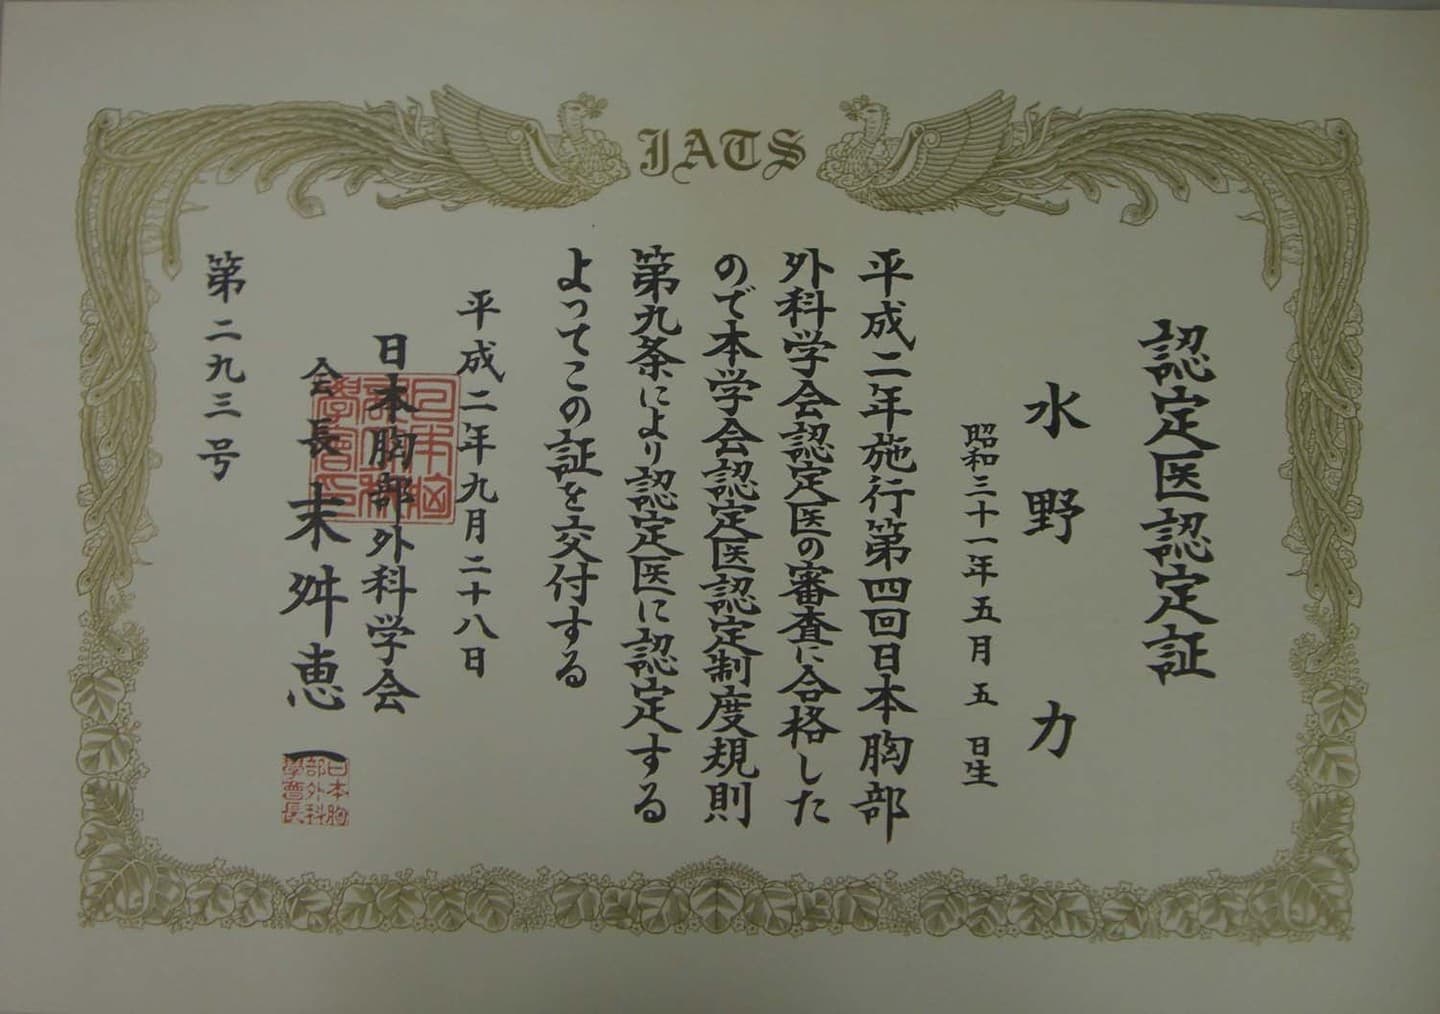 JATS
認定医認定証
水野力
昭和三十一年五月五日生
平成二年施行第四回日本胸部
外科学会認定医の審査に合格した
ので本学会認定医認定制度規則
第九条により認定医に認定する
よってこの証を交付する
平成二年九月二十八日
日本胸部外科学会
会長末舛恵一
日本胸
部外科
學會長
第二九三号